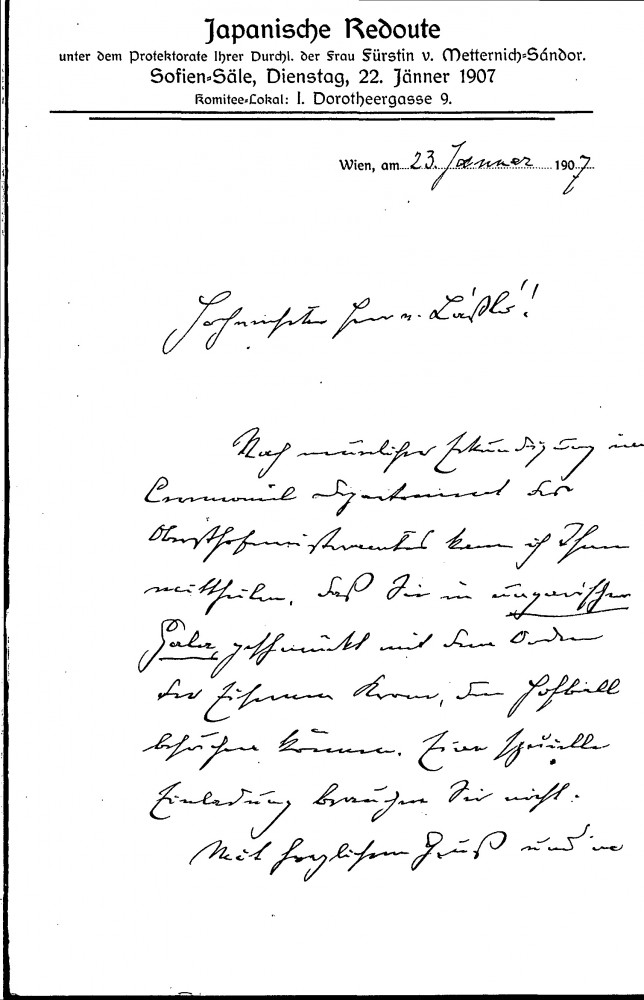 Japanische Redoute
unter dem Protektorate Ihrer Durchl. der Frau Fürstin v. Metternich-Sándor.
Sofien-Säle, Dienstag, 22. Jänner 1907
Komitee-Lokal: I. Dorotheergasse 9.
Wien, am 23. Januar 1907
Hochverehrter Herr v. László!
Nach mündlicher Erkundigung im
Ceremoniell Departement des
Obersthofmeisteramtes kann ich Ihnen
mittheilen, daß Sie in ungarischer
Gala, geschmückt mit dem Orden
der Eisernen Krone, den Hofball
besuchen können. Eine spezielle
Einladung brauchen Sie nicht.
Mit herzlichem Gruß und